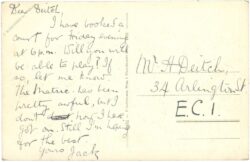 Dear Deitch,
I have booked a
court for today evening
at 6pm. Will you
be able to play? If
so, let me know.
The Matric has been
pretty awful, but I
don't how I have
got on. Still I'm hoping
for the best.
Yours Jack
Mr A Deitch,
34 Arlington St
E.C.1.